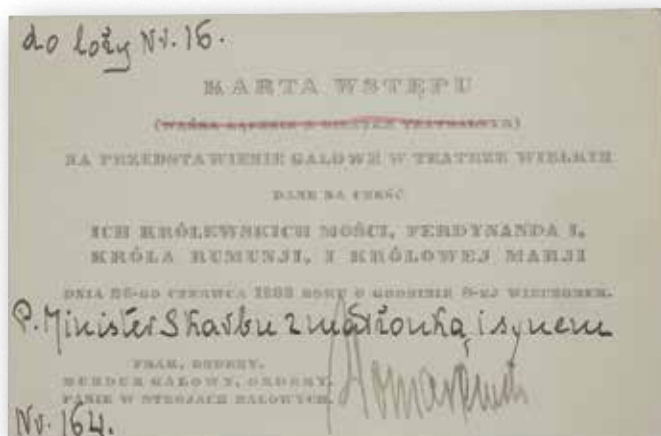 do loży Nr. 16.
KARTA WSTĘPU
(WAŻNA ŁĄCZNIE Z BILETEM TEATRALNYM)
NA PRZEDSTAWIENIE GALOWE W TEATRZE WIELKIM
DANE NA CZEŚĆ
ICH KRÓLEWSKICH MOŚCI, FERDYNANDA I,
KRÓLA RUMUNJI, I KRÓLOWEJ MARJI
DNIA CZERWCA ROKU O GODZINIE 8-EJ WIECZOREM.
P. Minister Skarbu z małżonką i synem
FRAK, ORDERY.
MUNDUR GALOWY, ORDERY.
PANIE W STROJACH BALOWYCH.
Nr. 164.